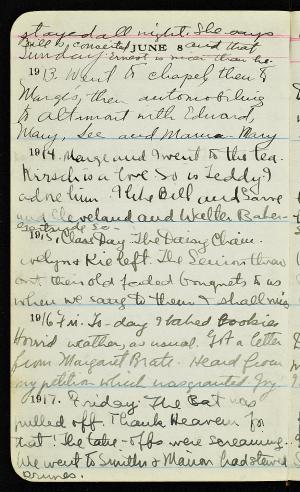 stayed all night. She says
Bill is conceited and that
JUNE 8
Sunday Ernest is nicer than he.
1913. Went to chapel, then to
Margie's, then automobiling
to Altamont with Edward,
Mary, Lee and Mama. Mary
1914. Marge and I went to the tea.
Kirsch is a love So is Teddy I
adore him. I like Bill and
and Cleveland and Walter Baker
so-so-
1915. Class Day. The Daisy Chain.
Evelyn & Kie left. The Seniors threw
out their old faded bouquets to us
when we sang to them. I shall miss
1916 Fri. To-day I baked cookies
Horrid weather, as usual. Got a letter
from Margaret Brate. Heard from
my petition which was granted Joy
1917. Friday The Bat was
pulled off. Thank Heaven for
that! The take-offs were screaming.
We went to Smith's & Marion had stewed
prunes.